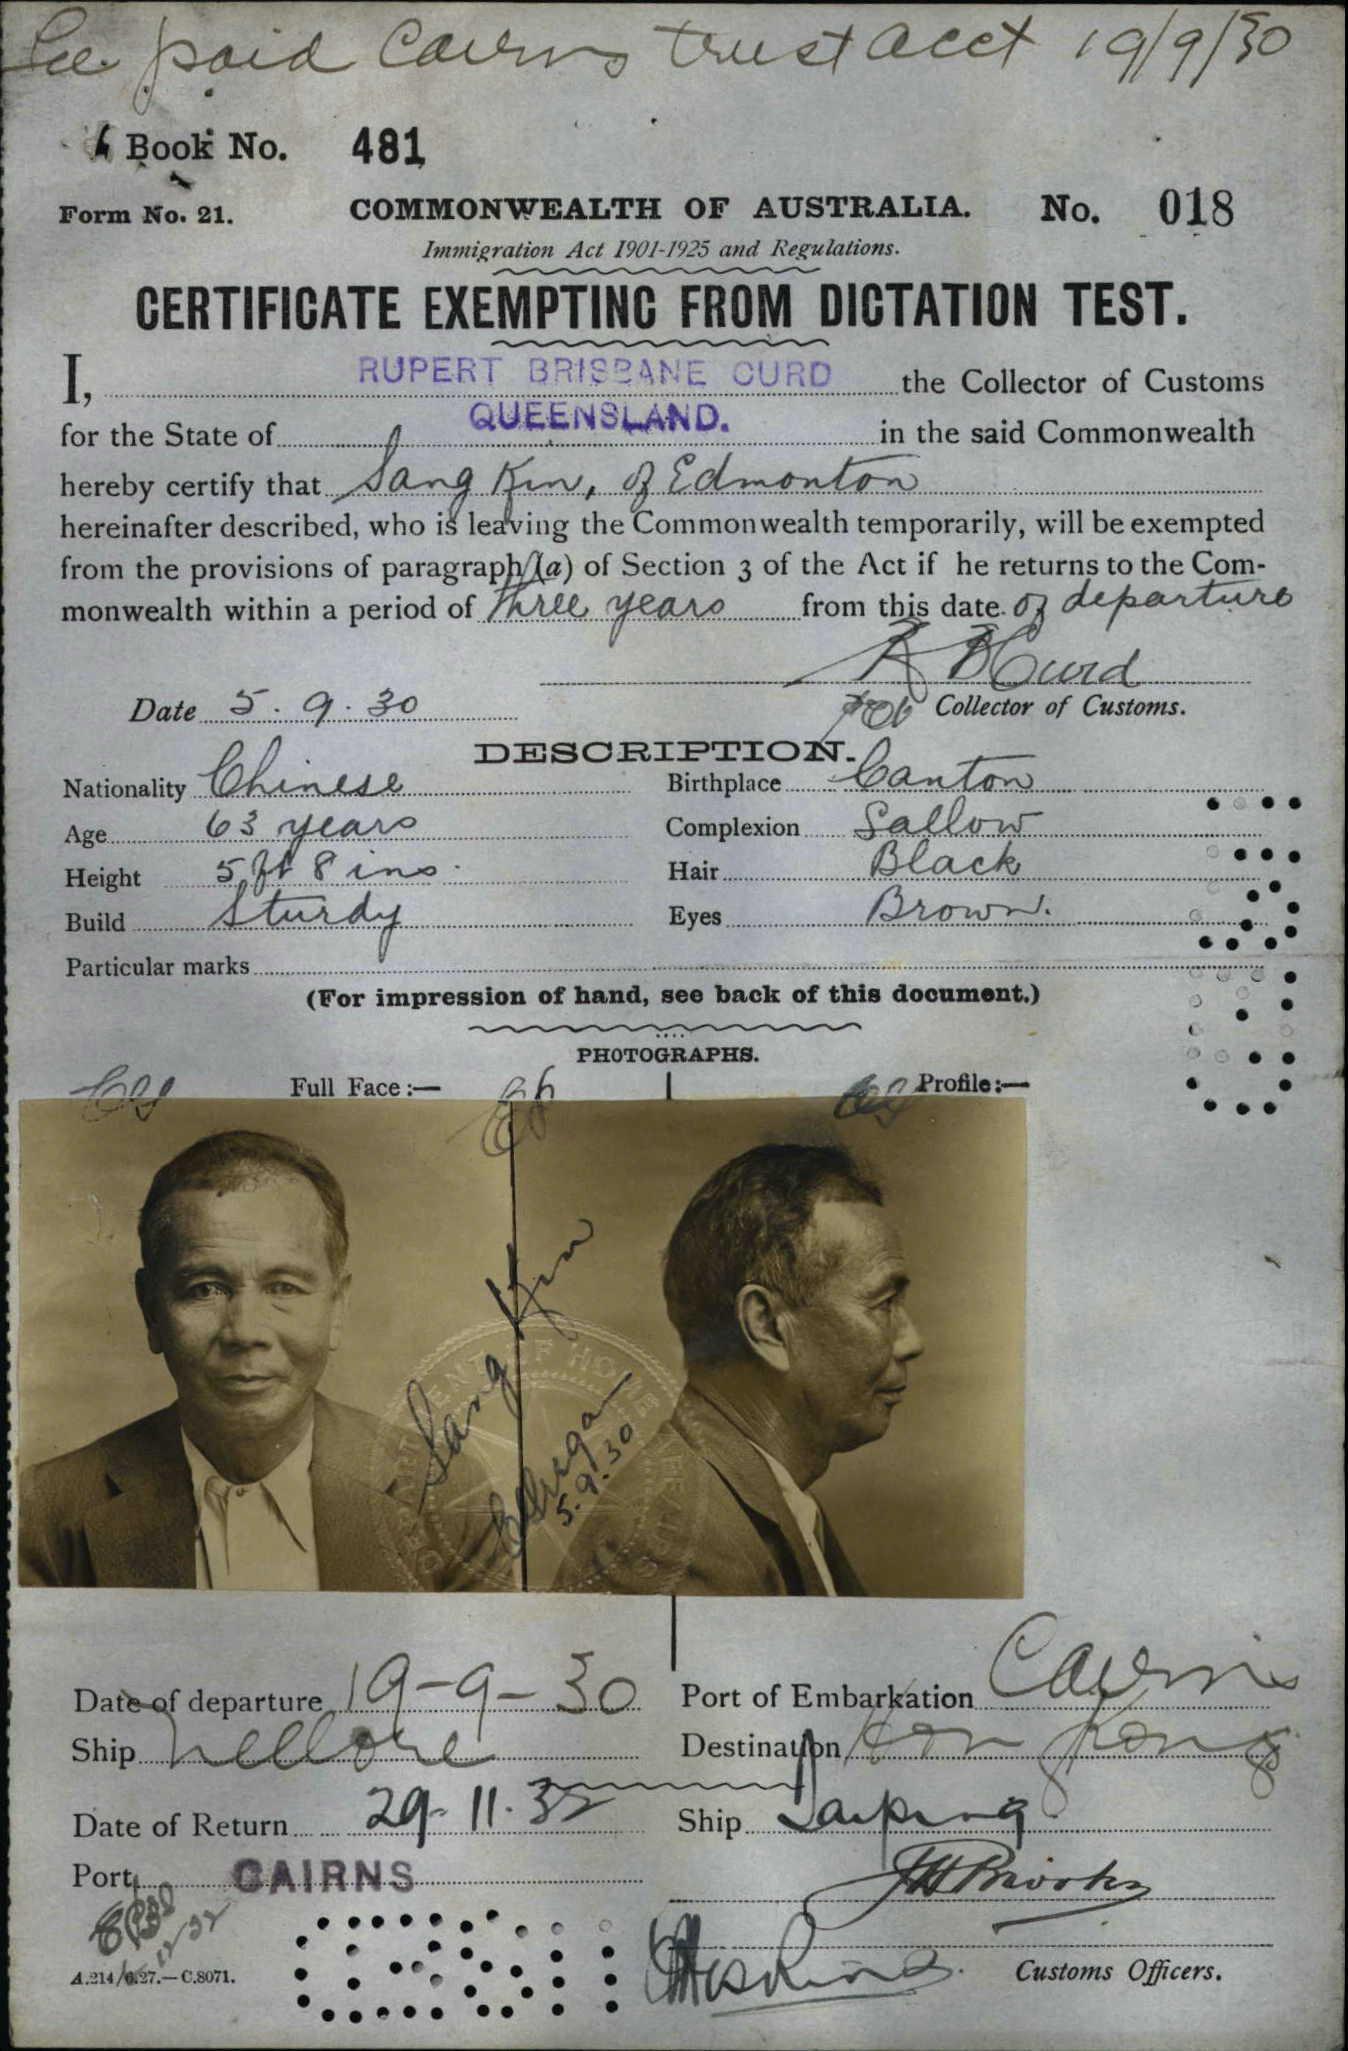 Fee paid Cairns trust acct 19/9/30
Book No. 481
Form No. 21. COMMONWEALTH OF AUSTRALIA. No. 018
Immigration Act 1901-1925 and Regulations.
CERTIFICATE EXEMPTING FROM DICTATION TEST.
I, RUPERT BRISBANE CURD the Collector of Customs
for the State of QUEENSLAND. in the said Commonwealth
hereby certify that Sang Kin, of Edmonton
hereinafter described, who is leaving the Commonwealth temporarily, will be exempted
from the provisions of paragraph (a) of Section 3 of the Act if he returns to the Com-
monwealth within a period of three years from this date of departure
R B Curd
Date 5.9.30 Collector of Customs.
DESCRIPTION.
Nationality Chinese Birthplace Canton
Age 63 years Complexion Sallow
Height 5 ft 8 ins. Hair Black
Build Sturdy Eyes Brown.
Particular marks
(For impression of hand, see back of this document.)
PHOTOGRAPHS.
Full Face :— Profile :—
Sang Kin
5.9.30
Date of departure 19-9-30 Port of Embarkation Cairns
Ship Nellore Destination Hon Kong
Date of Return 29.11.32 Ship Taiping
Port CAIRNS
Customs Officers.
A.214/6.27.—C.8071.